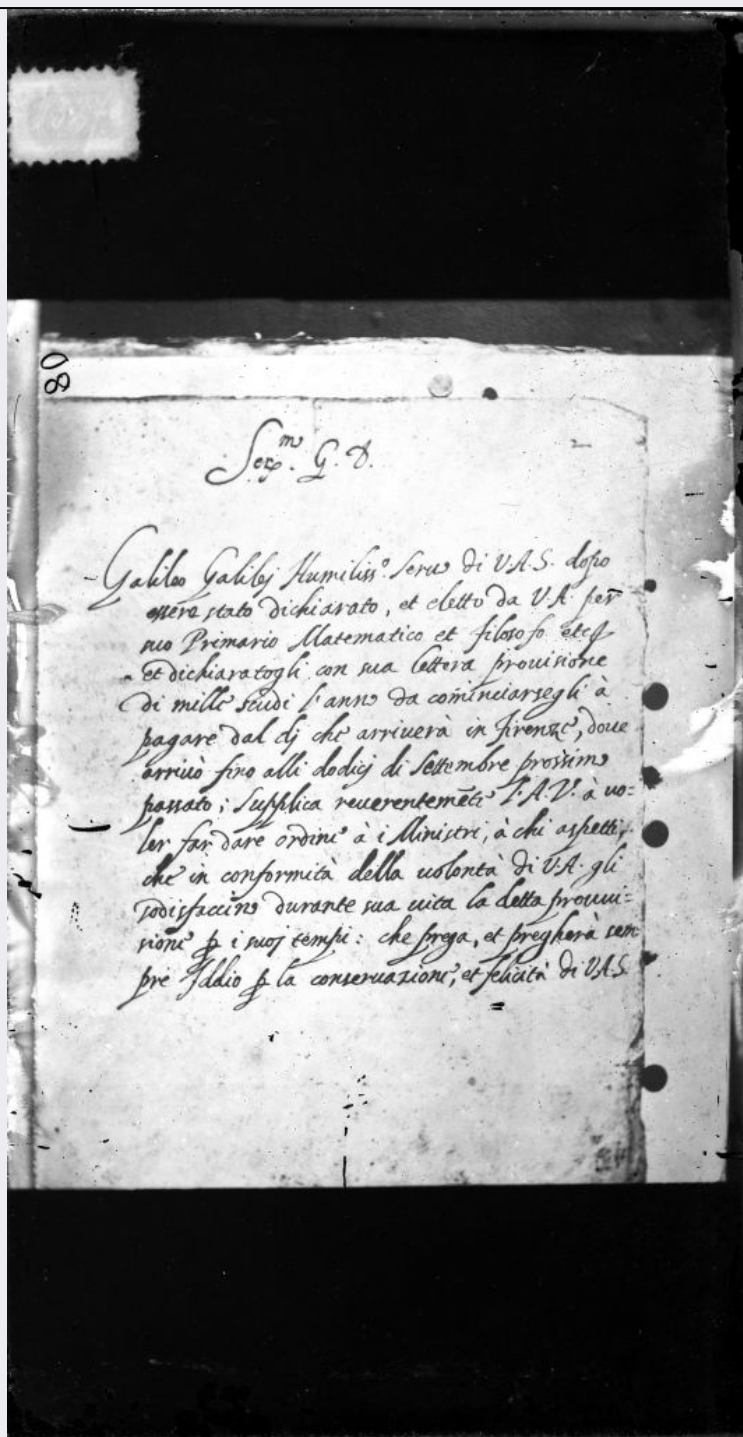 80
2
Ser.mo G. D.
Galileo Galilej Humiliss.o seruo di V.A.S. dopo
essere stato dichiarato, et eletto da V.A. per
suo Primario Matematico et filosofo etc
et dichiaratogli con sua lettera prouisione
di mille scudi l'anno da cominciarsegli à
pagare dal dj che arriuerà in Firenze, doue
arriuò fino alli dodicj di Settembre prossimo
passato; supplica reuerentemēte l'A.V. à uo=
ler far dare ordine à i Ministri, à chi aspetti,
che in conformità della uolontà di V.A. gli
sodisfaccino durante sua uita la detta prouui=
sione ꝑ i suoj tempi: che prega, et pregherà sem
pre Iddio ꝑ la conseruazione, et felicità di V.A.S.